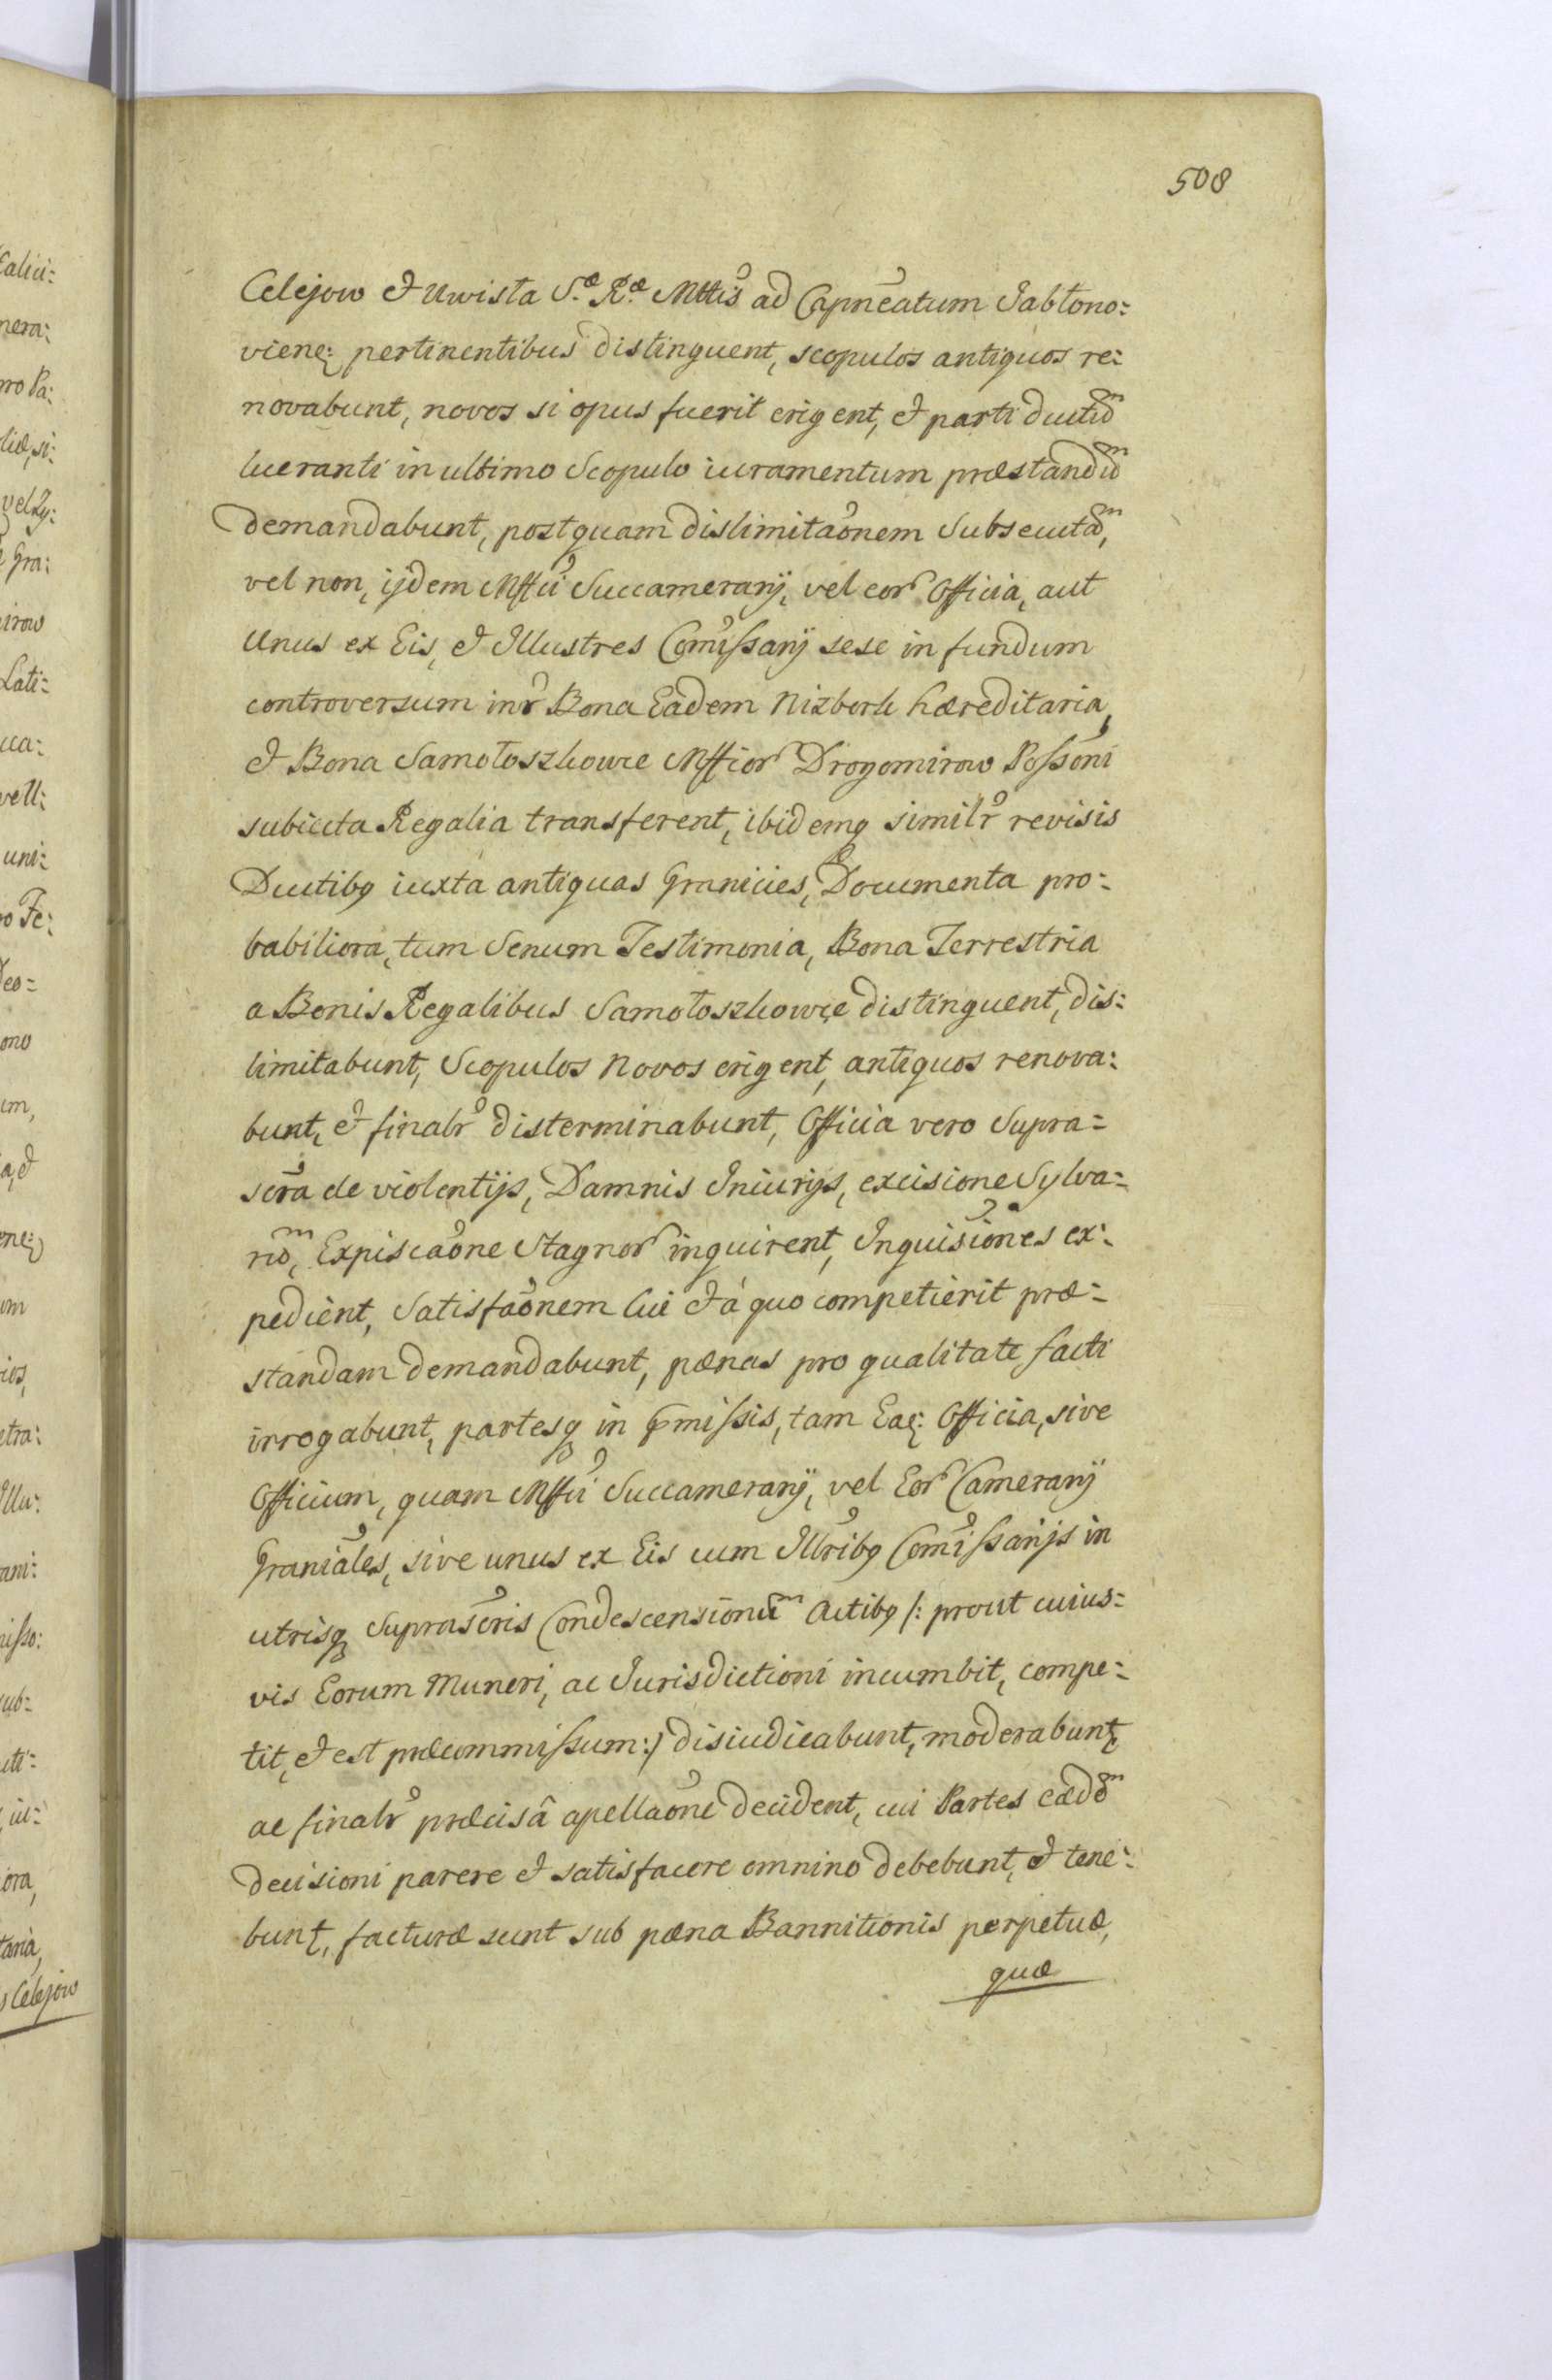 508
Celejow et Uwisla S.æ R.æ Mttis ad Capneatum Jabłono:
viene: pertinentibus distinguent, scopulos antiquos re:
novabunt, novos si opus fuerit erigent, et parti ductũ
lucranti in ultimo Scopulo iuramentum præstandũ
demandabunt, postquam dislimitaõnem Subsecutã,
vel non, ijdem Mffci Succamerarij, vel eor Officia, aut
Unus ex Eis, et Illustres Comissarij sese in fundum
controversum inr Bona Eadem Nizbork hæreditaria,
et Bona Samołoszkowce Mffcor Drogomirow Possoni
subiecta Regalia transferent, ibidemq similr revisis
Ductibq iuxta antiquas Granicies, Documenta pro:
babiliora, tum Senum Testimonia, Bona Terrestria
a Bonis Regalibus Samołoszkowce distinguent, dis:
limitabunt, Scopulos Novos erigent, antiquos renova:
bunt, et finalr disterminabunt, Officia vero Supra=
scra de violentijs, Damnis Iniurijs, excisione Sylva=
rũ, Expiscaõne Stagnor inquirent, Inquisiones ex:
pedient, Satisfaõnem Cui et á quo competierit præ=
standam demandabunt, pænas pro qualitate facti
irrogabunt, partesq in pmissis, tam Eaq: Officia, sive
Officium, quam Mffci Succamerarij, vel Eor Camerarij
Graniales, sive unus ex Eis cum Illribq Comissarijs in
utrisq Suprascris Condescensionũ Actibq /: prout cuius:
vis Eorum Muneri, ac Jurisdictioni incumbit, compe:
tit, et est præcommissum:/ disiudicabunt, moderabunt,
ac finalr præcisâ apellaõne decident, cui Partes eædẽ
decisioni parere et satisfacere omnino debebunt, et tene:
bunt, facturæ sunt sub pæna Bannitionis perpetuæ,
quæ